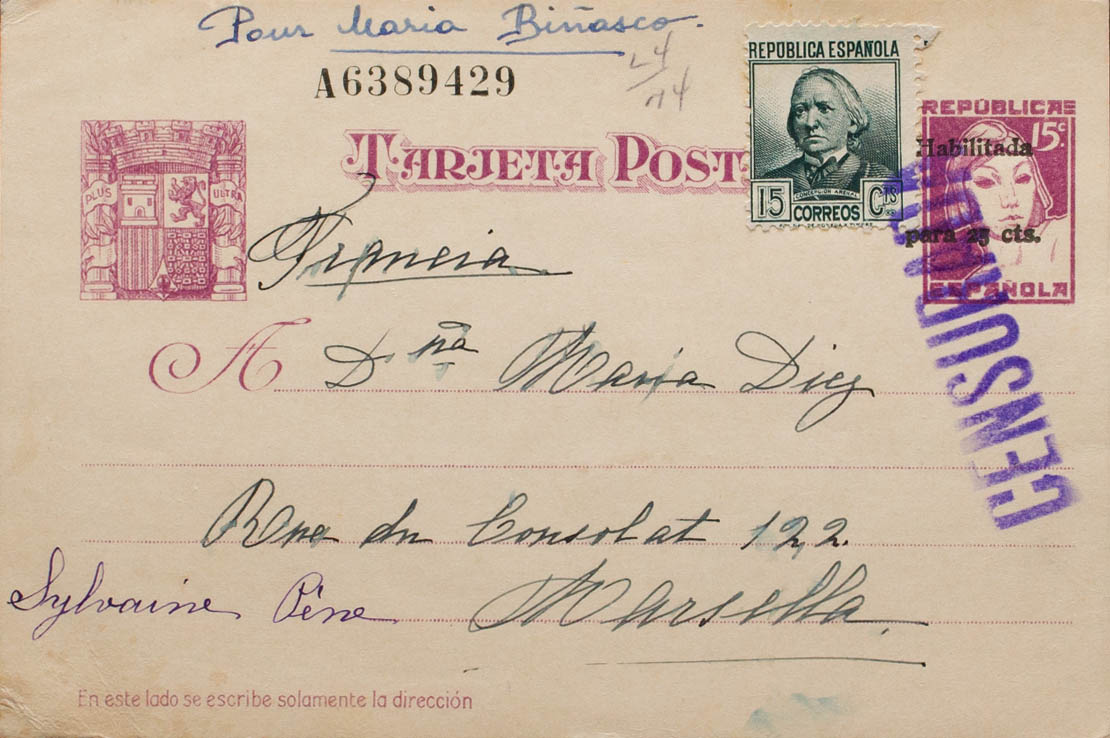 Pour Maria Biñasco.
A6389429
TARJETA POST
REPÚBLICA ESPAÑOLA
CONCEPCION ARENAL
15 CORREOS Cts
REPÚBLICA
15c
Habilitada
para 25 cts.
ESPAÑOLA
PLUS ULTRA
CENSURADA
Francia
A Dña Maria Diez
Rue du Consolat 122.
Sylvaine Pène
Marsella.
En este lado se escribe solamente la dirección